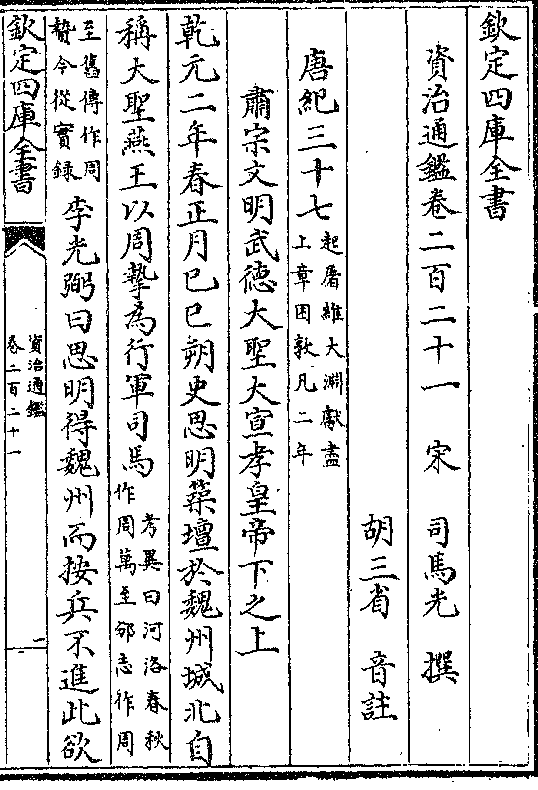 欽定四庫全書
資治通鑑卷二百二十一　宋　司馬光　撰
胡三省　音註
唐紀三十七起屠維大淵獻盡
上章困敦凡二年
肅宗文明武德大聖大宣孝皇帝下之上
乾元二年春正月巳巳朔史思明築壇於魏州城北自
稱大聖燕王以周摯為行軍司馬考異曰河洛春秋
作周萬至邠志作周
至舊傳作周
贄今從實錄李光弼曰思明得魏州而按兵不進此欲
欽定四庫全書
資治通鑑
卷二百二十一
一